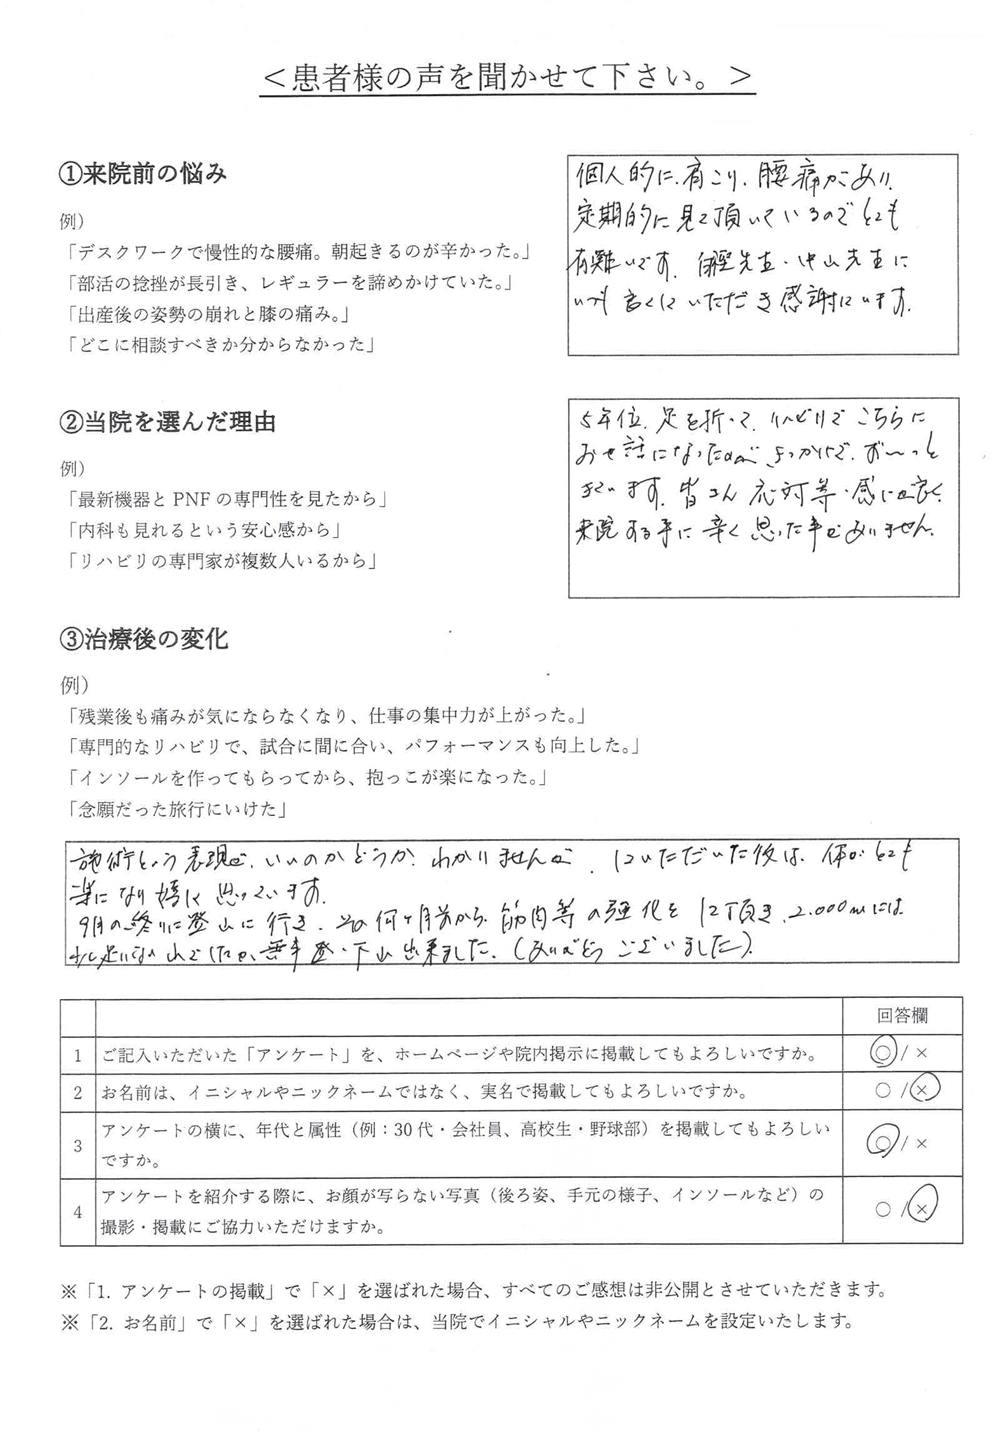 ＜患者様の声を聞かせて下さい。＞
①来院前の悩み
例）
「デスクワークで慢性的な腰痛。朝起きるのが辛かった。」
「部活の捻挫が長引き、レギュラーを諦めかけていた。」
「出産後の姿勢の崩れと膝の痛み。」
「どこに相談すべきか分からなかった」
個人的に、肩こり、腰痛があり、
定期的に見て頂いているのでとても
有難いです。先生・中山先生に
いつも良くしていただき感謝しています。
②当院を選んだ理由
例）
「最新機器と PNF の専門性を見たから」
「内科も見れるという安心感から」
「リハビリの専門家が複数人いるから」
5年位、足を折って、リハビリでこちらに
お世話になったのがきっかけで、ず〜っと
きています。皆さん応対等・感じが良く、
来院する事に辛く思った事がありません。
③治療後の変化
例）
「残業後も痛みが気にならなくなり、仕事の集中力が上がった。」
「専門的なリハビリで、試合に間に合い、パフォーマンスも向上した。」
「インソールを作ってもらってから、抱っこが楽になった。」
「念願だった旅行にいけた」
施術という表現が、いいのかどうか、わかりませんが、していただいた後は、体がとても
楽になり嬉しく思っています。
9月の終りに登山に行き、その何ヶ月前から筋肉等の強化をして頂き、2,000mには
少し足りない山でしたが、無事登・下山出来ました。（ありがとうございました）。
回答欄
1 ご記入いただいた「アンケート」を、ホームページや院内掲示に掲載してもよろしいですか。 ○ / ×
2 お名前は、イニシャルやニックネームではなく、実名で掲載してもよろしいですか。 ○ / ×
3 アンケートの横に、年代と属性（例：30 代・会社員、高校生・野球部）を掲載してもよろしい ○ / ×
ですか。
4 アンケートを紹介する際に、お顔が写らない写真（後ろ姿、手元の様子、インソールなど）の ○ / ×
撮影・掲載にご協力いただけますか。
※「1. アンケートの掲載」で「×」を選ばれた場合、すべてのご感想は非公開とさせていただきます。
※「2. お名前」で「×」を選ばれた場合は、当院でイニシャルやニックネームを設定いたします。